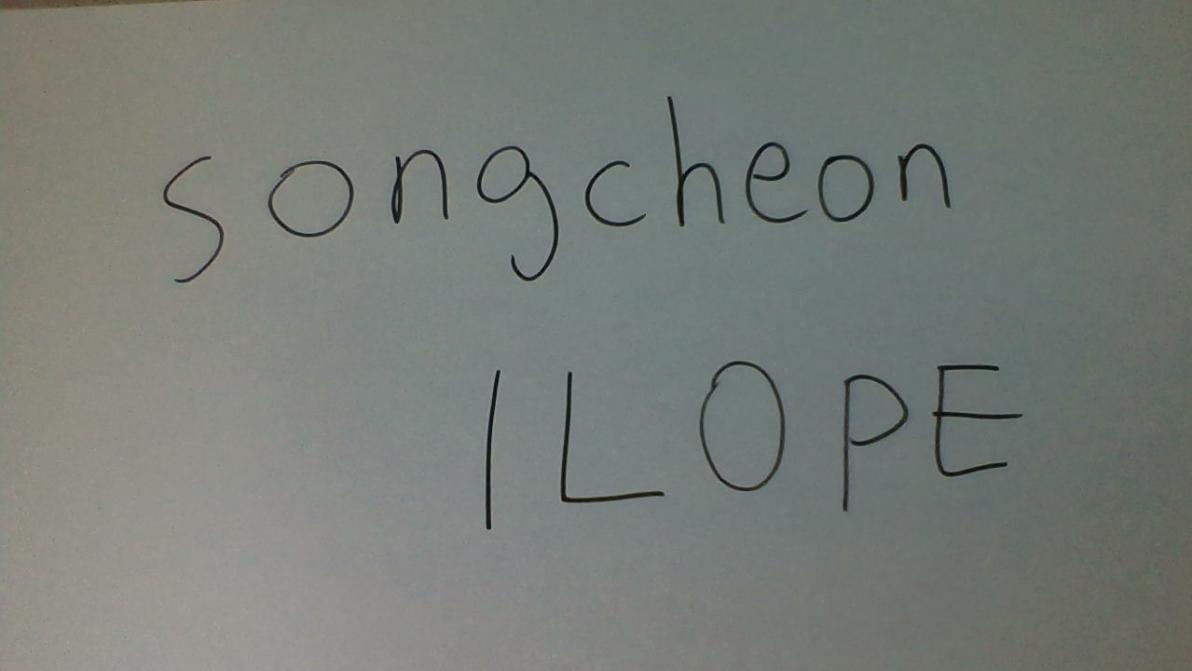 songcheon
ILOPE